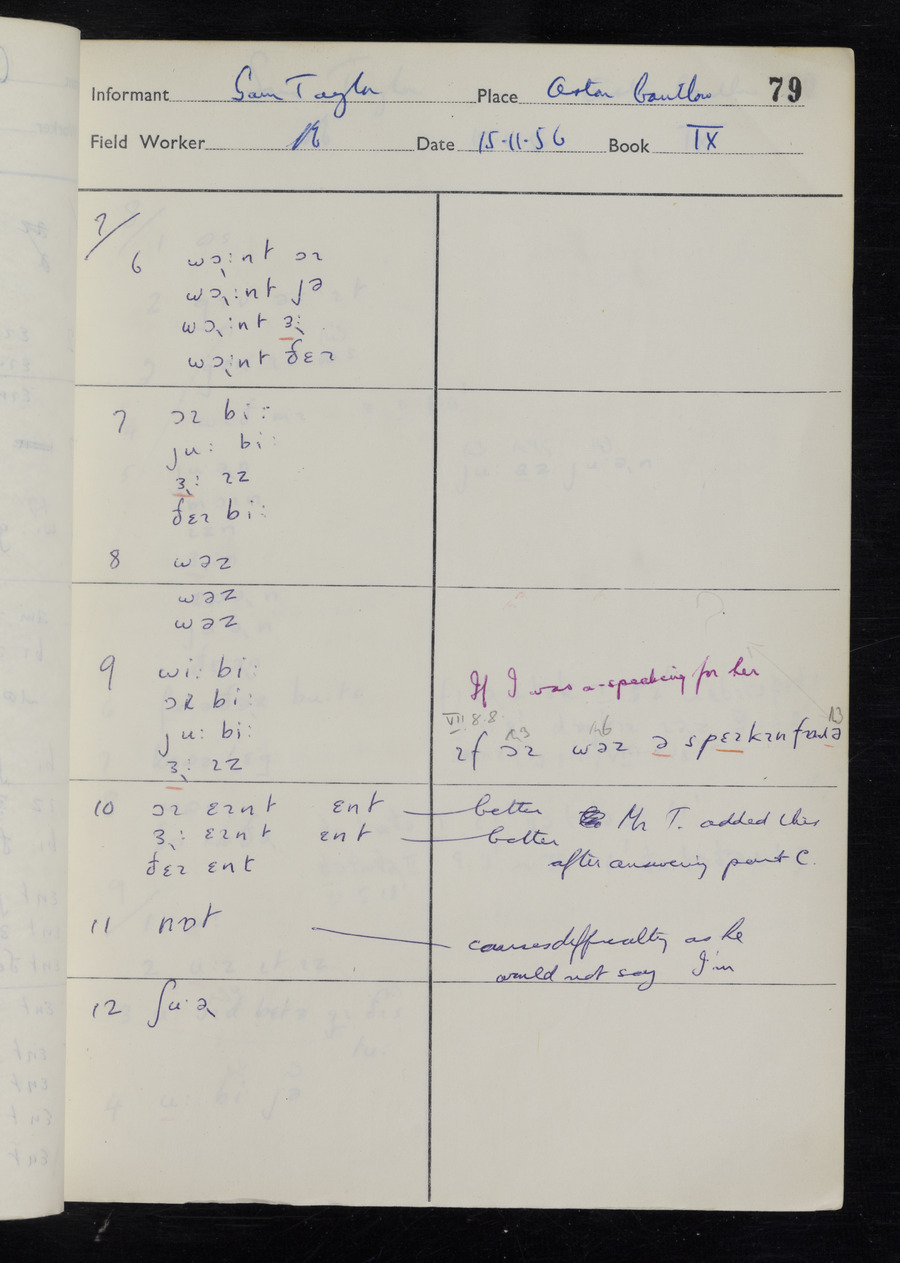 Informant Sam Taylor Place Aston Cantlow 79
Field Worker Date 15-11-56 Book IX
7/
6 wɔ̣:nt ɔɪ
wɔ̣:nt jə
wɔ̣:nt ɜ:
wɔ̣:nt ðɛɪ
7 ɔɪ bi:
ju: bi:
ɜ: ɪz
ðɛɪ bi:
8 wəz
wəz
wəz
9 wi: bi:
ɔɪ bi:
ju: bi:
ɜ: ɪz
If I was a-speaking for her
VII 8.8.
ɪf ɔɪ wəz ə spɛɪkɪn
10 ɔɪ ɛɪnt ɛnt better Mr T. added this
ɜ: ɛɪnt ɛnt better
ðɛɪ ɛnt after answering part C.
11 nɒt causes difficulty as he
would not say I'm
12 ʃu:ə